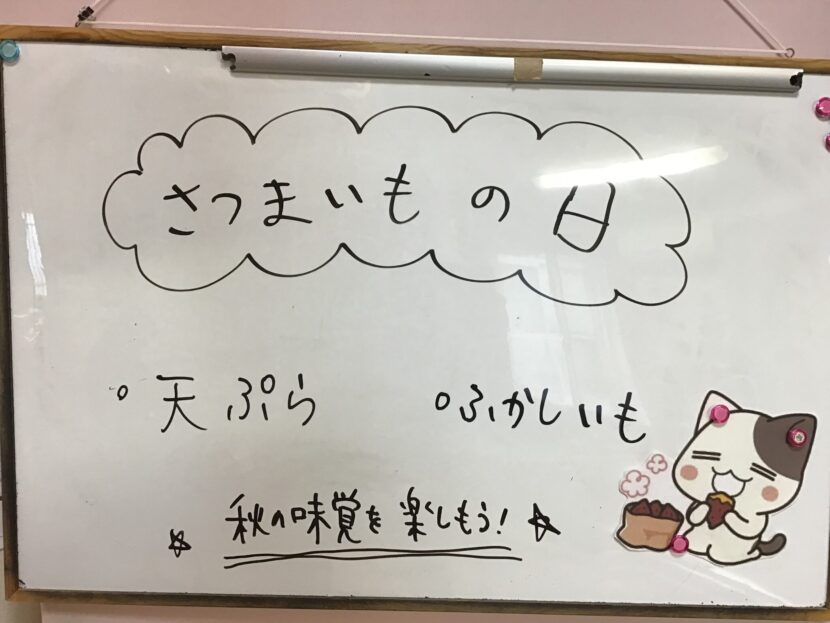 さつまいもの日
○天ぷら ○ふかしいも
☆秋の味覚を楽しもう!☆